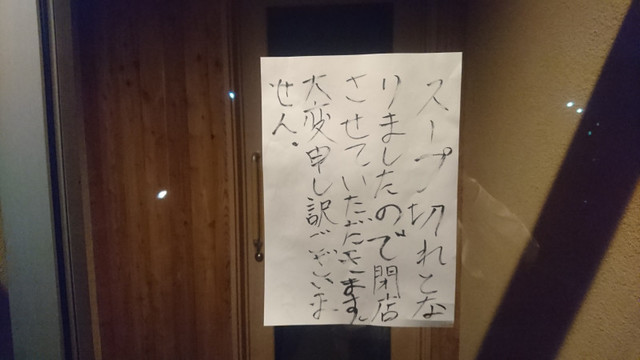 スープ切れとな
りましたので閉店
させていただきます。
大変申し訳ございま
せん。